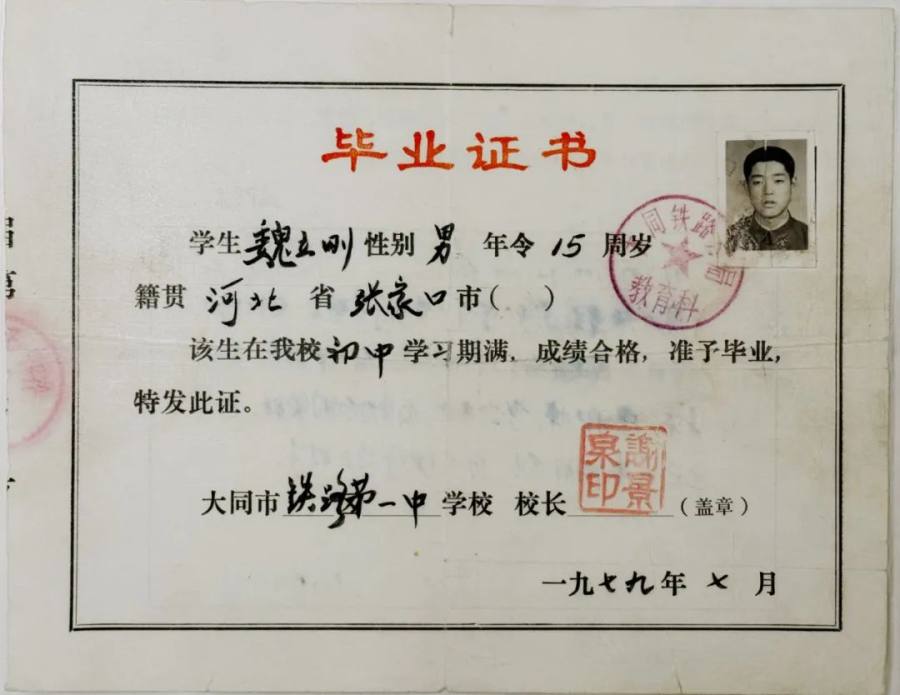 毕业证书
学生 魏立刚 性别 男 年令 15 周岁
籍贯 河北 省 张家口 市( )
该生在我校 初中 学习期满，成绩合格，准予毕业，
特发此证。
大同市 铁路第一中 学校 校长 谢景泉印 (盖章)
一九七九年 七 月
同铁路
教育科